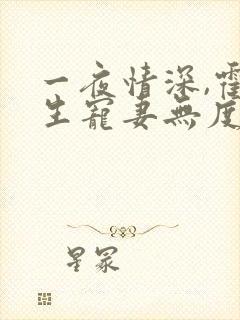 一夜情深,霍
生寵妻無度
星冢